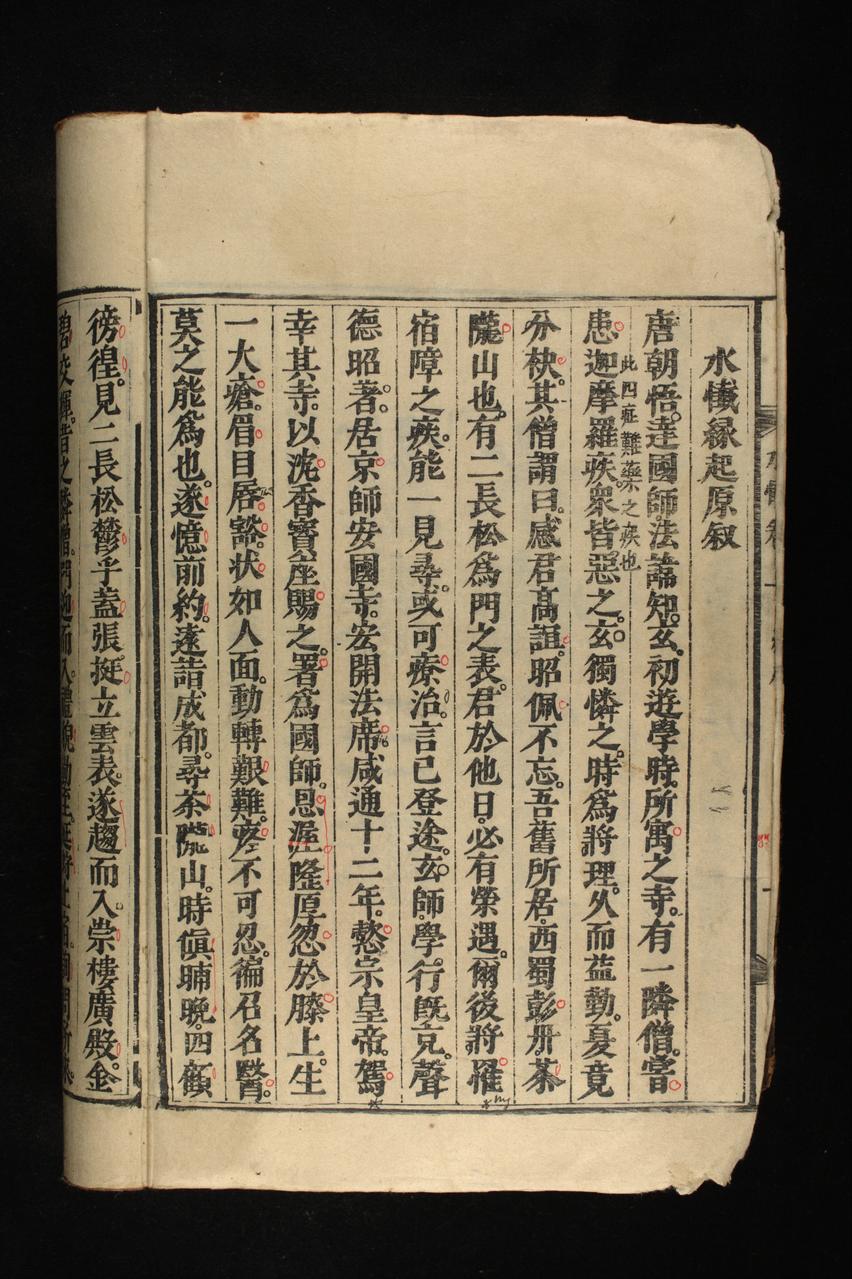 水懺緣起原叙
唐朝悟達國師法諱知玄初遊學時。所寓之寺。有一隣僧。嘗
患迦摩羅疾。衆皆惡之。玄獨憐之。時為將理。久而益勤。夏竟
此四症難藥之疾也
分袂。其僧謂曰。感君高誼。昭佩不忘。吾舊所居。西蜀彭州。茶
隴山也。有二長松為門之表。君於他日。必有榮遇。爾後將罹
宿障之疾。能一見尋。或可療治。言已登途。玄師。學行既充。聲
德昭著。居京師安國寺。宏開法席。咸通十二年。懿宗皇帝。駕
幸其寺。以沈香寶座賜之。署為國師。恩渥隆厚。忽於膝上。生
一大瘡。眉目唇豁。状如人面。動轉艱難。疼不可忍。徧召名醫。
莫之能為也。遂憶前約。遠詣成都。尋茶隴山。時傎晡晚。四顧
徬徨。見二長松鬱乎蓋張。挺立雲表。遂趨而入。崇樓廣殿。金
碧交輝。昔之隣僧。門迎而入。禮貌勤至。延
水懺卷上